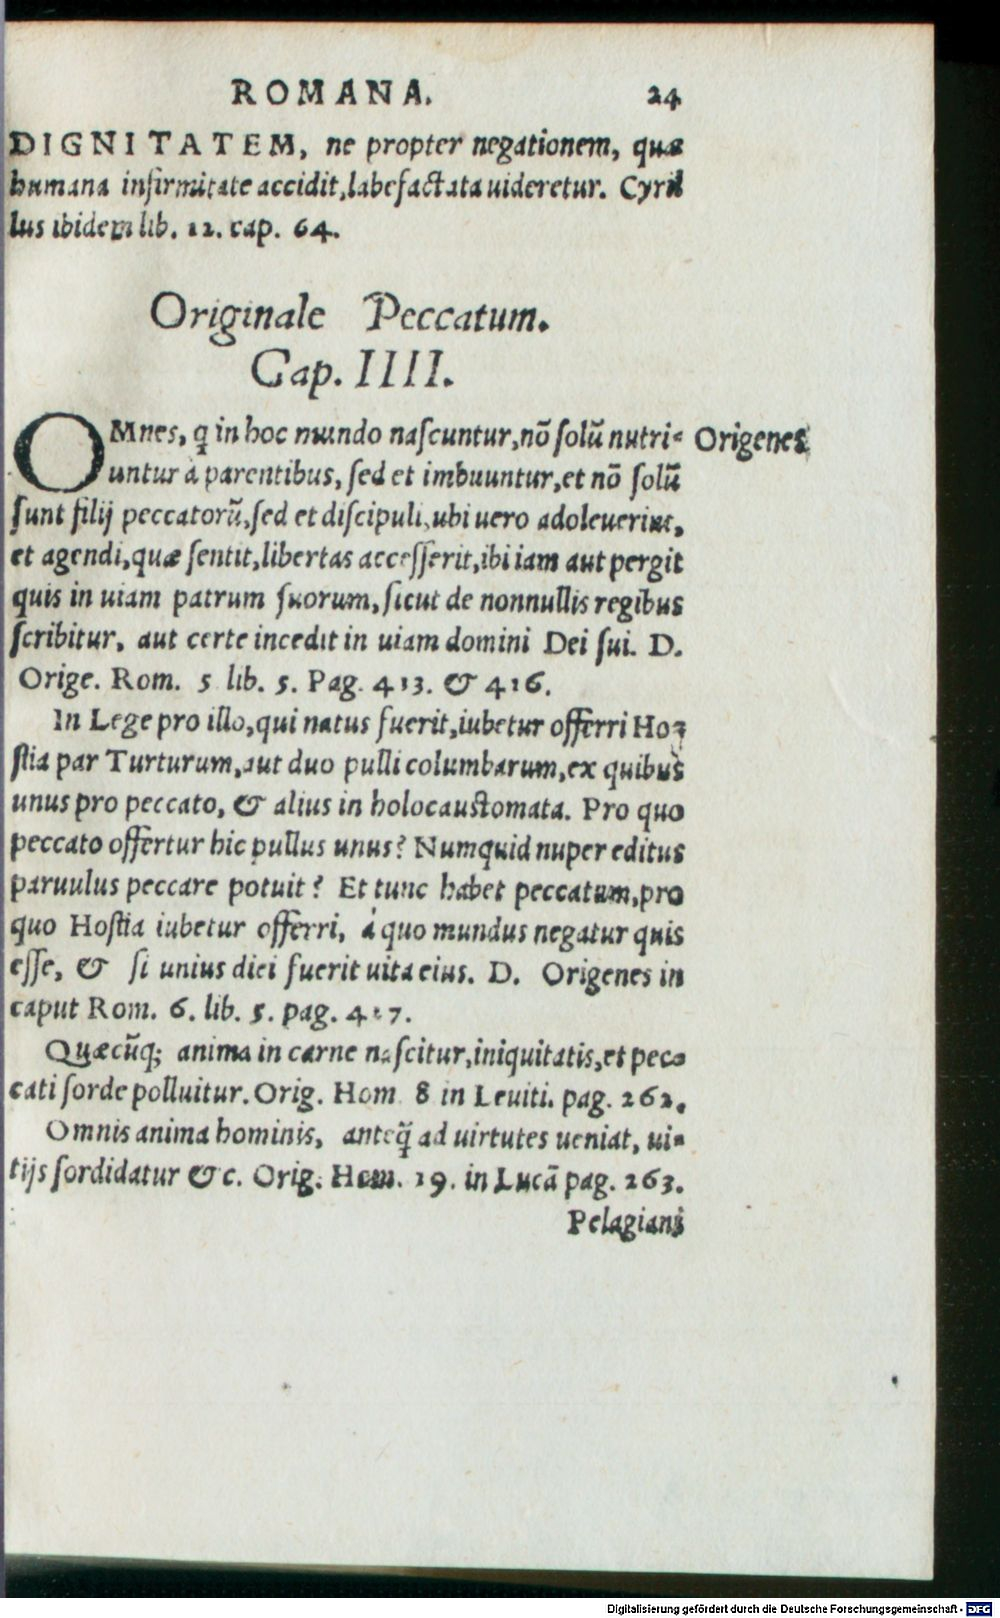 ROMANA. 24
DIGNITATEM, ne propter negationem, quæ
humana infirmitate accidit, labefactata uideretur. Cyril
lus ibidem lib. 12. cap. 64.
Originale Peccatum.
Cap. IIII.
OMnes, ꝗ in hoc mundo naſcuntur, nõ ſolũ nutri- Origenes
untur à parentibus, ſed et imbuuntur, et nõ ſolũ
ſunt filij peccatorũ, ſed et diſcipuli, ubi uero adoleuerint,
et agendi, quæ ſentit, libertas acceſſerit, ibi iam aut pergit
quis in uiam patrum ſuorum, ſicut de nonnullis regibus
ſcribitur, aut certe incedit in uiam domini Dei ſui. D.
Orige. Rom. 5 lib. 5. Pag. 413. & 416.
In Lege pro illo, qui natus fuerit, iubetur offerri Ho-
ſtia par Turturum, aut duo pulli columbarum, ex quibus
unus pro peccato, & alius in holocauſtomata. Pro quo
peccato offertur hic pullus unus? Numquid nuper editus
paruulus peccare potuit? Et tunc habet peccatum, pro
quo Hoſtia iubetur offerri, á quo mundus negatur quis
eſſe, & ſi unius diei fuerit uita eius. D. Origenes in
caput Rom. 6. lib. 5. pag. 417.
Quæcũq; anima in carne naſcitur, iniquitatis, et pec-
cati ſorde polluitur. Orig. Hom 8 in Leuiti. pag. 262.
Omnis anima hominis, anteq̃ ad uirtutes ueniat, ui-
tijs ſordidatur &c. Orig. Hom. 19. in Lucã pag. 263.
Pelagiani
Digitalisierung gefördert durch die Deutsche Forschungsgemeinschaft - DFG